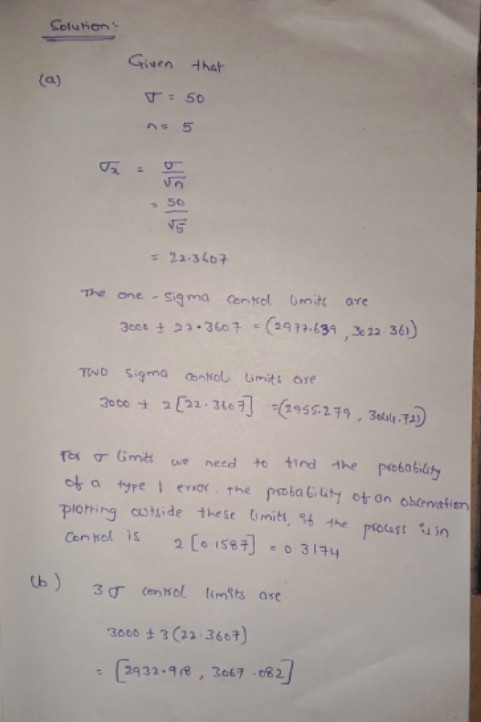 Solution:-
Given that
(a)
σ = 50
n = 5
σx = σ/√n
= 50/√5
= 22.3607
The one-sigma control limits are
3000 ± 22.3607 = (2977.639, 3022.361)
TWO sigma control limits are
3000 ± 2[22.3607] = (2955.279, 3044.721)
For σ limits we need to find the probability
of a type 1 error. the probability of an observation
plotting outside these limits, if the process is in
control is 2[0.1587] = 0.3174
(b) 3σ control limits are
3000 ± 3(22.3607)
= [2932.918, 3067.082]